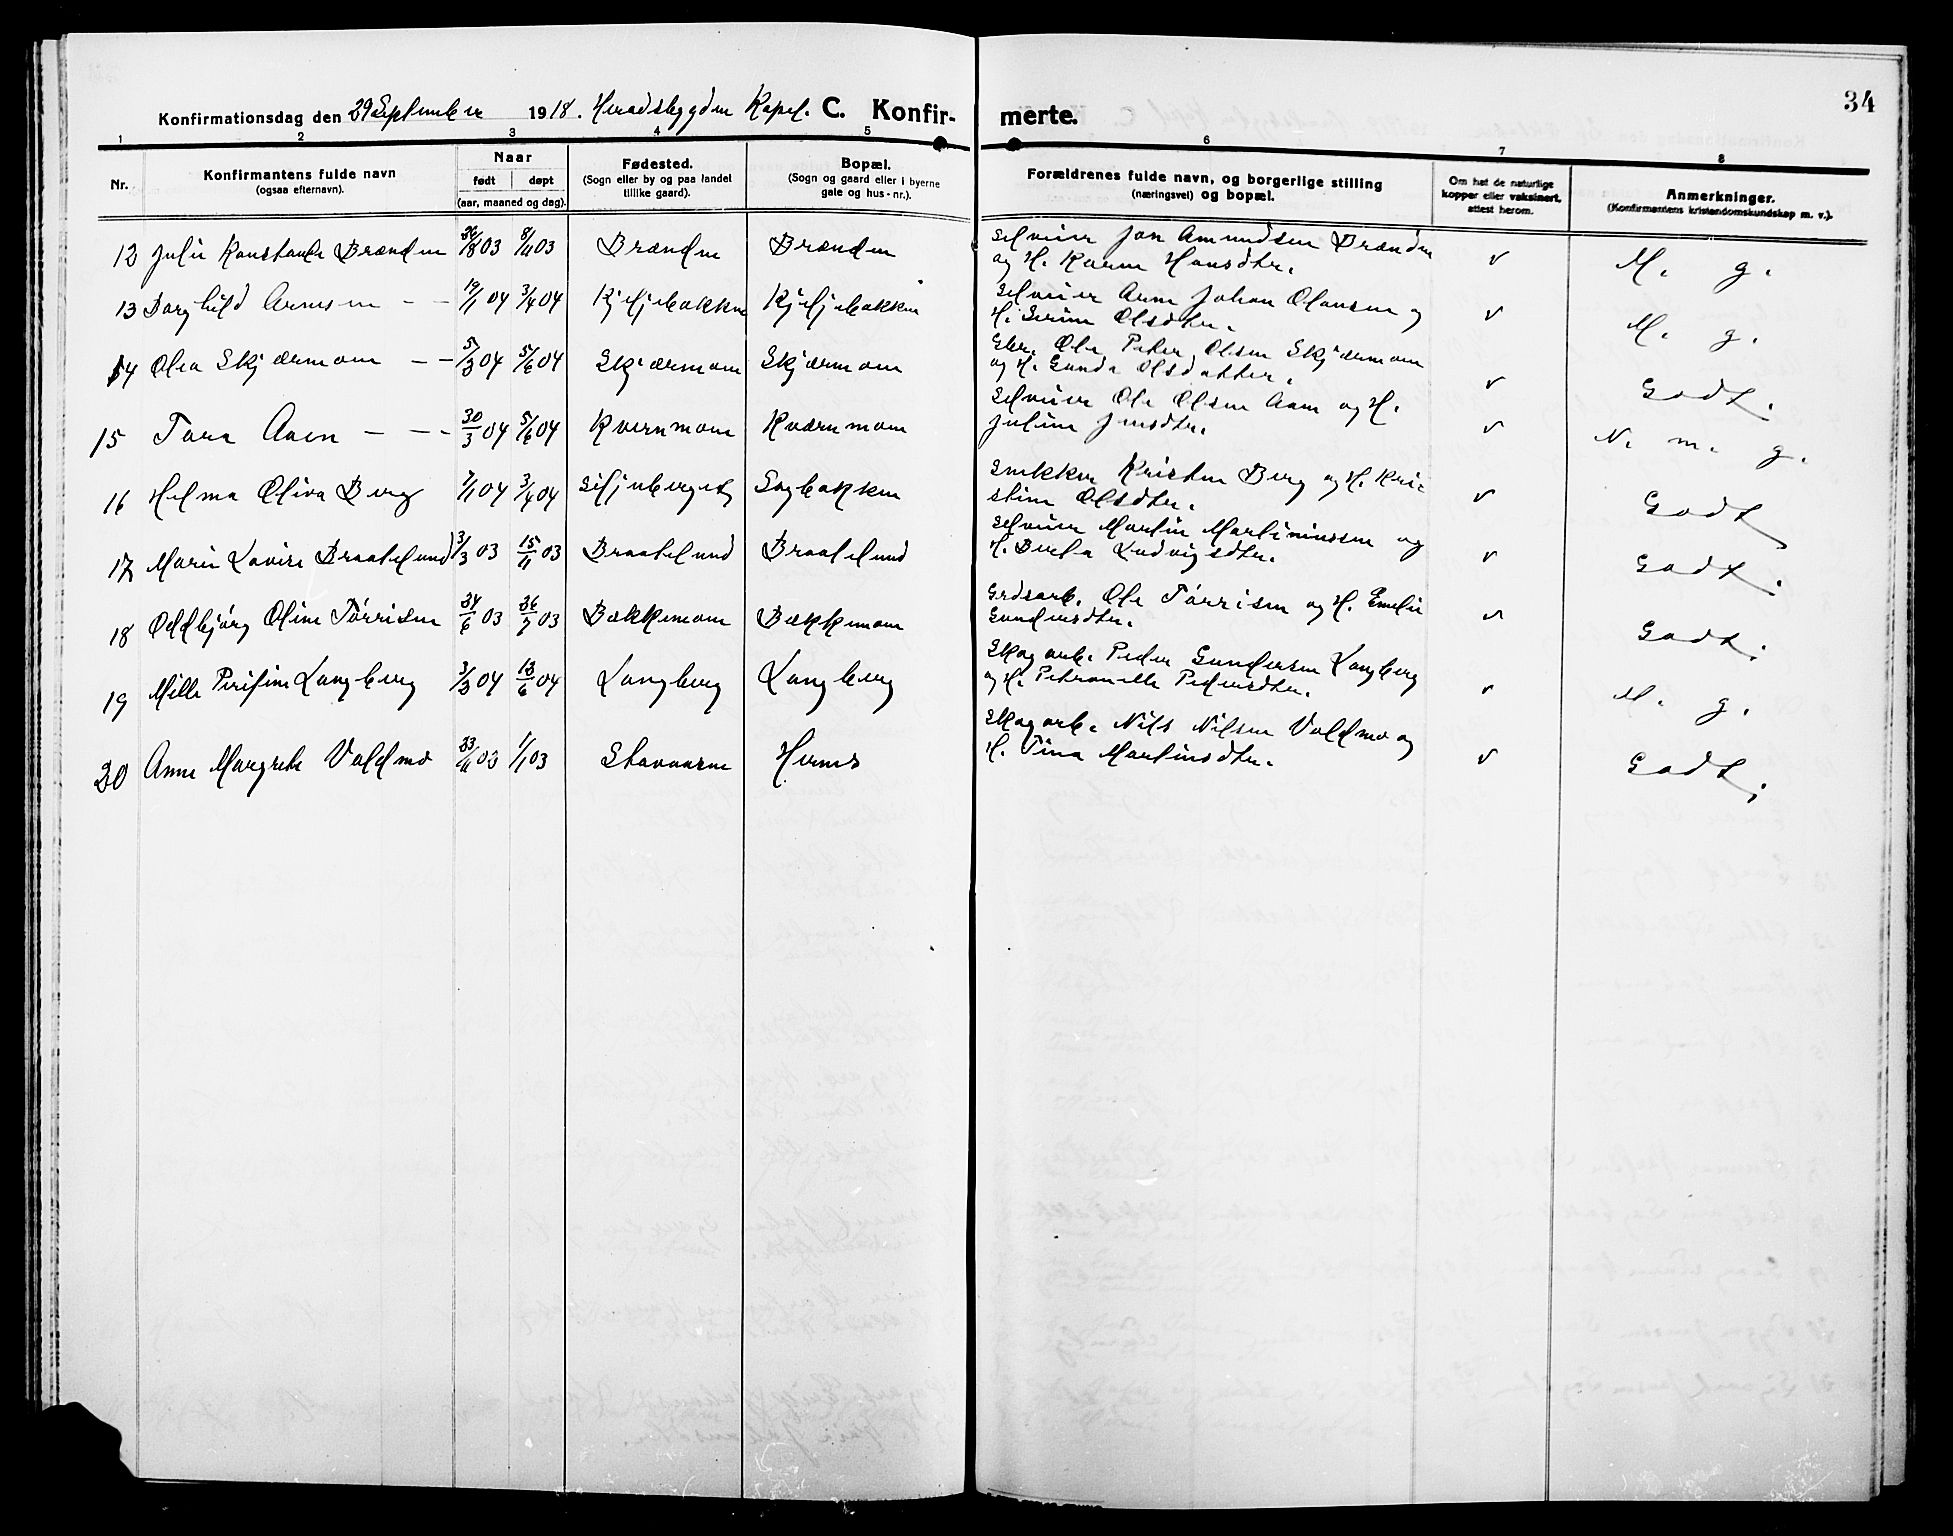 34
Konfirmationsdag den 29 September 1918. Heradsbygden Kapel. C. Konfirmerte.
1 2 3 4 5 6 7 8
Nr. Konfirmantens fulde navn (ogsaa efternavn). Naar født døpt (aar, maaned og dag). Fødested. (Sogn eller by og paa landet tillike gaard). Bopæl. (Sogn og gaard eller i byerne gate og hus-nr.). Forældrenes fulde navn, og borgerlige stilling (næringsvei) og bopæl. Om hat de naturlige kopper eller vaksinert, attest herom. Anmerkninger. (Konfirmantens kristendomskundskap m. v.).
12 Julie Konstanse Brænden 26/8 03 8/11 03 Brænden Brænden Selveier Jon Amundsen Brænden v M. g.
og H. Karen Hansdtr.
13 Borghild Arnesen – – 19/1 04 3/4 04 Kjeljebakken Kjeljebakken Selveier Arne Johan Olausen og v M. g.
H. Serine Olsdtr.
14 Olea Skjærmoen – – 5/3 04 5/6 04 Skjærmoen Skjærmoen Gbr. Ole Peder Olsen Skjærmoen v Godt.
og H. Gunda Olsdatter.
15 Tora Aaen – – – 30/3 04 5/6 04 Kvernmoen Kværnmoen Selveier Ole Olsen Aaen og H. v N. m. g.
Juline Jensdtr.
16 Helma Oliva Berg 7/1 04 3/4 04 Siljuberget Sagbakken Snekker Kristen Berg og H. Kri- v Godt
stine Olsdtr.
17 Marie Lovise Braatelund 3/3 03 15/11 03 Braatelund Braatelund Selveier Martin Martiniussen og v Godt.
H. Berta Ludvigsdtr.
18 Oddbjørg Oline Tørrisen 24/6 03 26/7 03 Bækkemoen Bækkemoen Grdsarb. Ole Tørrisen og H. Emelie v Godt.
Gundersdtr.
19 Mille Perfine Langberg 3/3 04 12/6 04 Langberg Langberg Skogarb. Peder Gundersen Langberg v M. g.
og H. Petronelle Pedersdtr.
20 Anne Margrete Voldmo 03 1/1 03 Stavaasen Hernes Skogarb. Nils Nilsen Voldmo og v Godt.
H. Tina Martinsdtr.